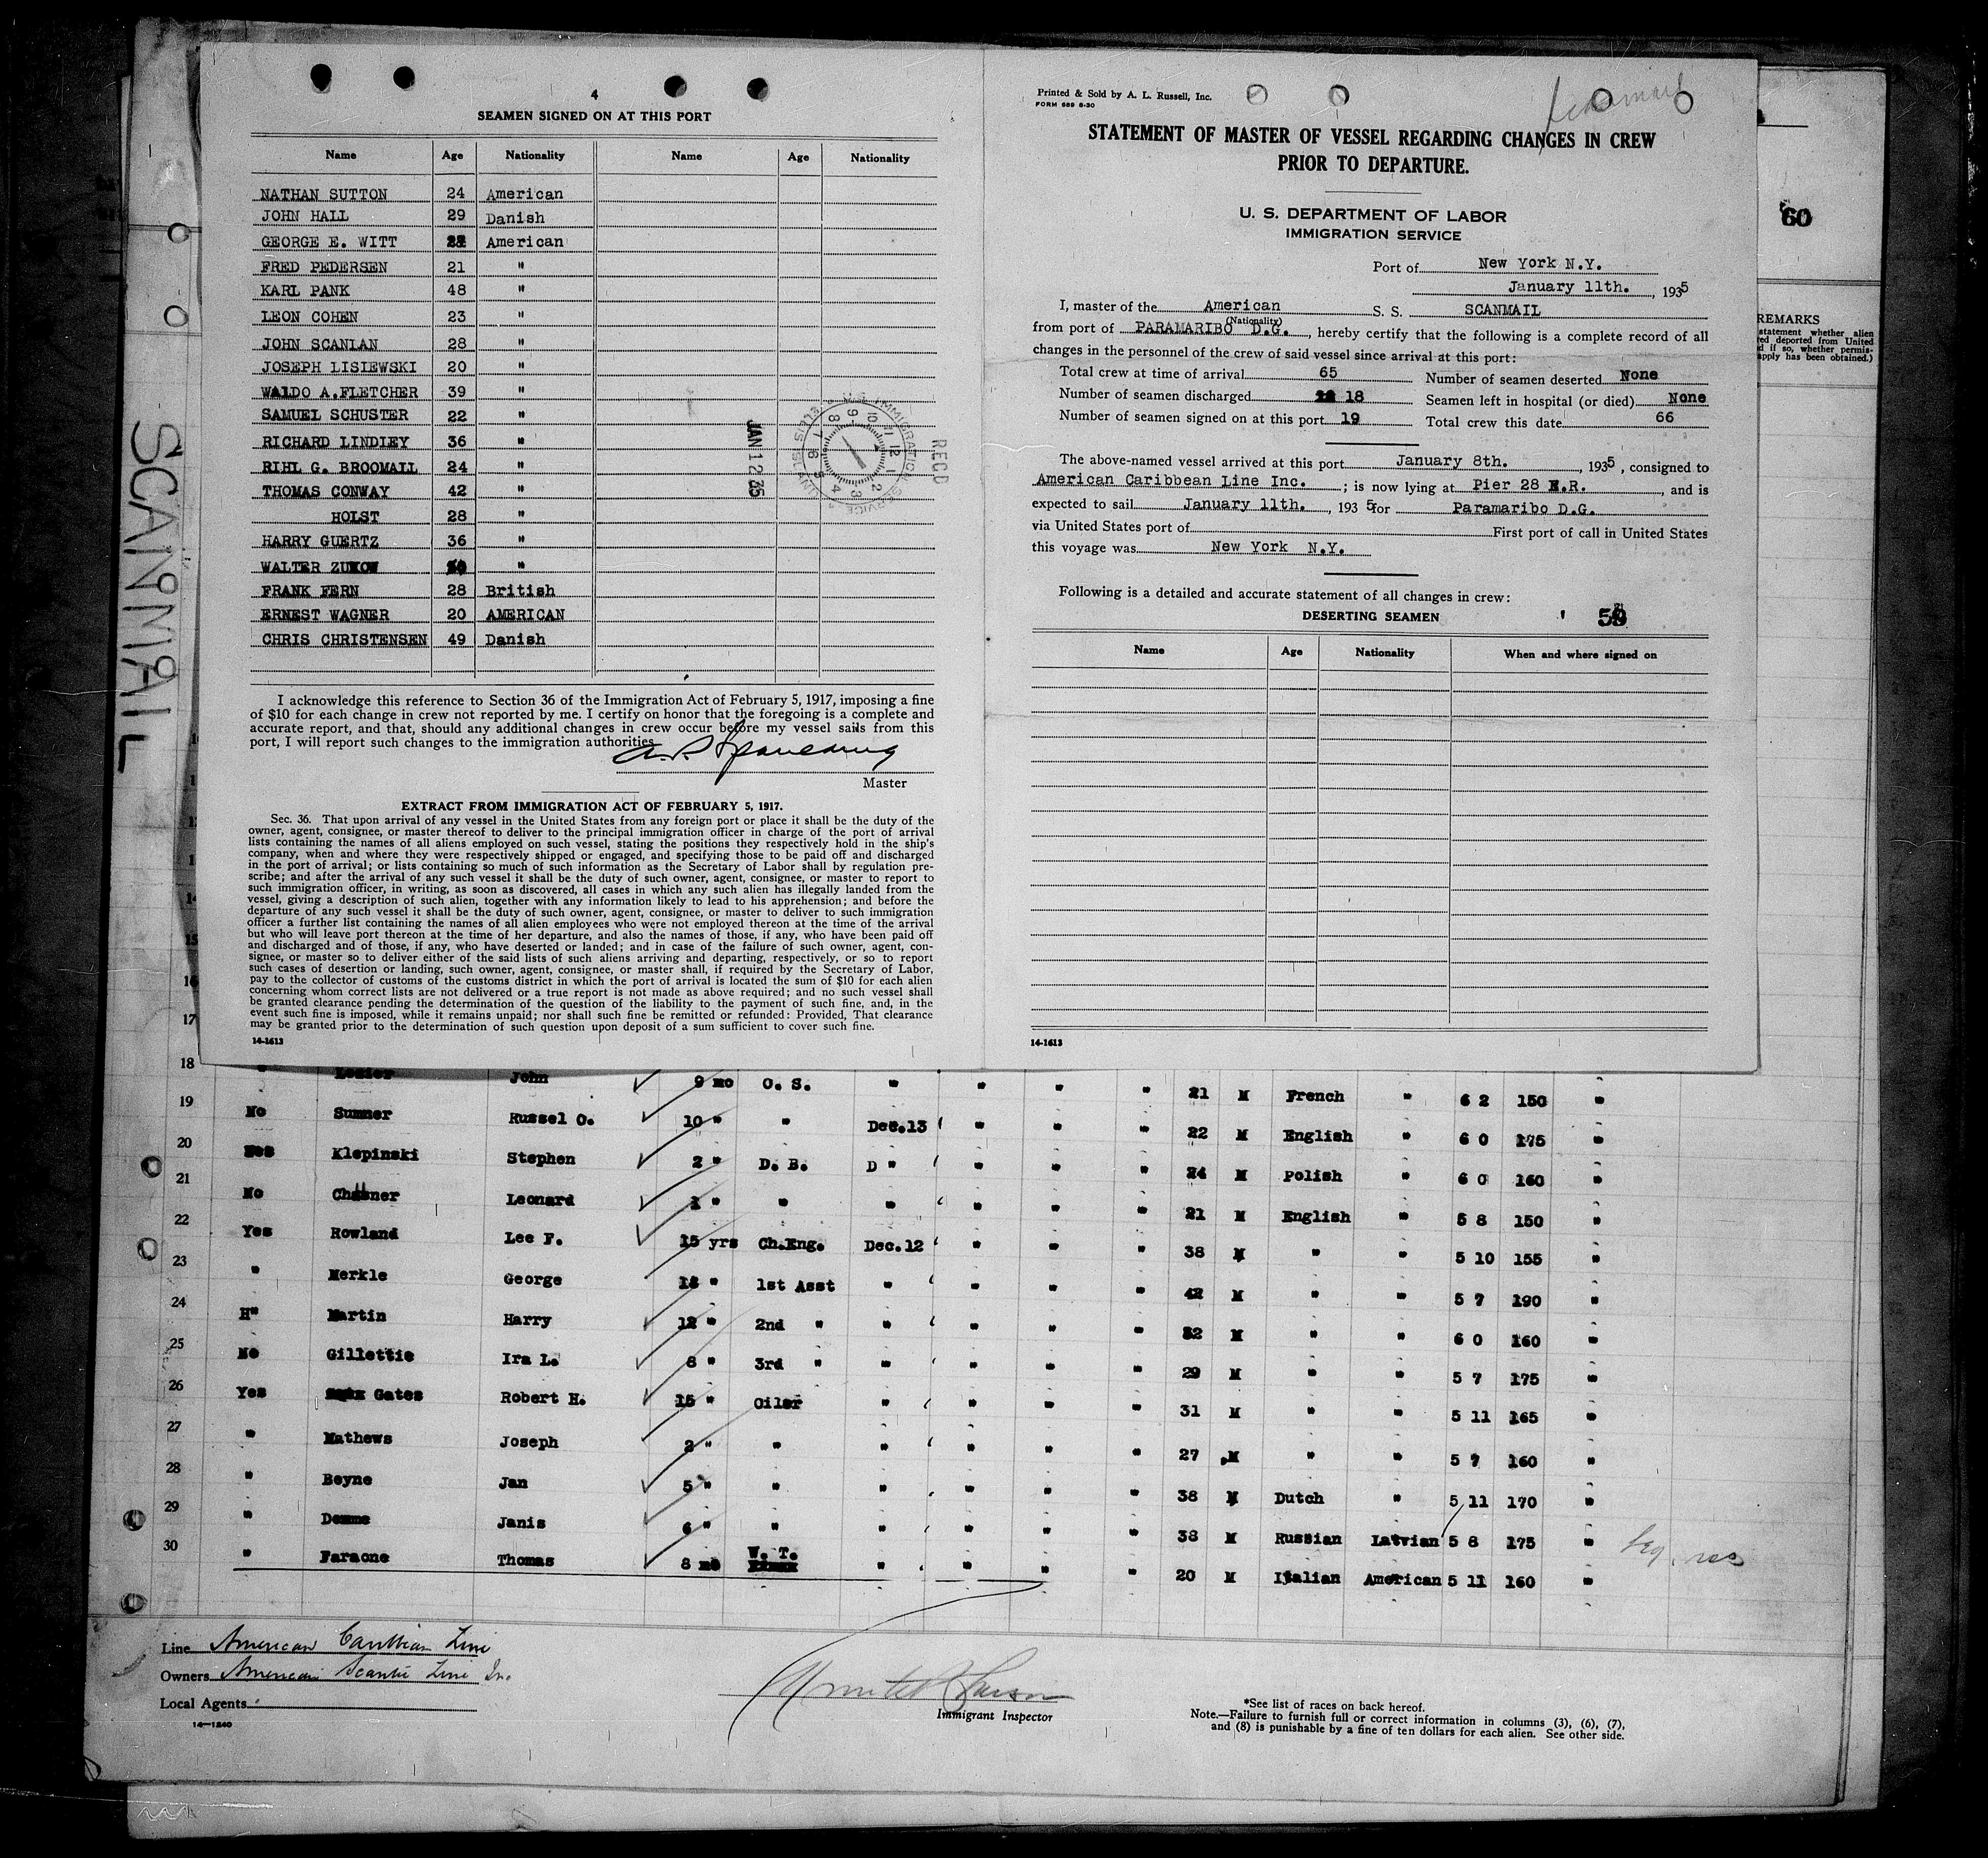 4
SEAMEN SIGNED ON AT THIS PORT
Name Age Nationality Name Age Nationality
NATHAN SUTTON 24 American
JOHN HALL 29 Danish
GEORGE E. WITT American
FRED PEDERSEN 21 "
KARL PANK 48 "
LEON COHEN 23 "
JOHN SCANLAN 28 "
JOSEPH LISIEWSKI 20 "
WALDO A.FLETCHER 39 "
SAMUEL SCHUSTER 22 "
RICHARD LINDLEY 36 "
RIHL G. BROOMALL 24 "
THOMAS CONWAY 42 "
HOLST 28 "
HARRY GUERTZ 36 "
WALTER ZUKOW "
FRANK FERN 28 British
ERNEST WAGNER 20 AMERICAN
CHRIS CHRISTENSEN 49 Danish
JAN 12 35
RECD
I acknowledge this reference to Section 36 of the Immigration Act of February 5, 1917, imposing a fine
of $10 for each change in crew not reported by me. I certify on honor that the foregoing is a complete and
accurate report, and that, should any additional changes in crew occur before my vessel sails from this
port, I will report such changes to the immigration authorities.
Master
EXTRACT FROM IMMIGRATION ACT OF FEBRUARY 5, 1917.
Sec. 36. That upon arrival of any vessel in the United States from any foreign port or place it shall be the duty of the
owner, agent, consignee, or master thereof to deliver to the principal immigration officer in charge of the port of arrival
lists containing the names of all aliens employed on such vessel, stating the positions they respectively hold in the ship's
company, when and where they were respectively shipped or engaged, and specifying those to be paid off and discharged
in the port of arrival; or lists containing so much of such information as the Secretary of Labor shall by regulation pre-
scribe; and after the arrival of any such vessel it shall be the duty of such owner, agent, consignee, or master to report to
such immigration officer, in writing, as soon as discovered, all cases in which any such alien has illegally landed from the
vessel, giving a description of such alien, together with any information likely to lead to his apprehension; and before the
departure of any such vessel it shall be the duty of such owner, agent, consignee, or master to deliver to such immigration
officer a further list containing the names of all alien employees who were not employed thereon at the time of the arrival
but who will leave port thereon at the time of her departure, and also the names of those, if any, who have been paid off
and discharged and of those, if any, who have deserted or landed; and in case of the failure of such owner, agent, con-
signee, or master so to deliver either of the said lists of such aliens arriving and departing, respectively, or so to report
such cases of desertion or landing, such owner, agent, consignee, or master shall, if required by the Secretary of Labor,
pay to the collector of customs of the customs district in which the port of arrival is located the sum of $10 for each alien
concerning whom correct lists are not delivered or a true report is not made as above required; and no such vessel shall
be granted clearance pending the determination of the question of the liability to the payment of such fine, and, in the
event such fine is imposed, while it remains unpaid; nor shall such fine be remitted or refunded: Provided, That clearance
may be granted prior to the determination of such question upon deposit of a sum sufficient to cover such fine.
14-1613
Printed & Sold by A. L. Russell, Inc.
FORM 689 6-30
Scanmail
STATEMENT OF MASTER OF VESSEL REGARDING CHANGES IN CREW
PRIOR TO DEPARTURE.
U. S. DEPARTMENT OF LABOR
IMMIGRATION SERVICE
Port of New York N.Y.
January 11th., 1935
I, master of the American S. S. SCANMAIL
(Nationality)
from port of PARAMARIBO D.G., hereby certify that the following is a complete record of all
changes in the personnel of the crew of said vessel since arrival at this port:
Total crew at time of arrival 65 Number of seamen deserted None
Number of seamen discharged 18 Seamen left in hospital (or died) None
Number of seamen signed on at this port 19 Total crew this date 66
The above-named vessel arrived at this port January 8th., 1935, consigned to
American Caribbean Line Inc.; is now lying at Pier 28 E.R., and is
expected to sail January 11th., 1935 for Paramaribo D.G.
via United States port of First port of call in United States
this voyage was New York N.Y.
Following is a detailed and accurate statement of all changes in crew:
DESERTING SEAMEN
59
Name Age Nationality When and where signed on
14-1613
60
REMARKS
statement whether alien
ed deported from United
d if so, whether permis-
apply has been obtained.)
SCANMAIL
17
18 " Lozier John 9 mo O. S. " " " " 21 M French " 6 2 150 "
19 No Sumner Russel O. 10 " " Dec.13 " " " 22 M English " 6 0 175 "
20 Yes Klepinski Stephen 2 " D. B. D " " " " 24 M Polish " 6 0 160 "
21 No Leonard 1 " " " " " " 21 M English " 5 8 150 "
22 Yes Rowland Lee F. 15 yrs Ch.Eng. Dec.12 " " " 38 M " " 5 10 155 "
23 " Merkle George " 1st Asst " " " " 42 M " " 5 7 190 "
24 Martin Harry 12 " 2nd " " " " " 32 M " " 6 0 160 "
25 No Gillettie Ira L. 8 " 3rd " " " " " 29 M " " 5 7 175 "
26 Yes Gates Robert H. 15 " Oiler " " " " 31 M " " 5 11 165 "
27 " Mathews Joseph 2 " " " " " " 27 M " " 5 7 160 "
28 " Beyne Jan 5 " " " " " " 38 M Dutch " 5 11 170 "
29 " Demme Janis 6 " " " " " " 38 M Russian Latvian 5 8 175 "
30 " Faraone Thomas 8 mo W. T. " " " " 20 M Italian American 5 11 160 "
Line American Caribbean Line
Owners American Scantic Line Inc
Local Agents
14-1240
Immigrant Inspector
*See list of races on back hereof.
Note.—Failure to furnish full or correct information in columns (3), (6), (7),
and (8) is punishable by a fine of ten dollars for each alien. See other side.